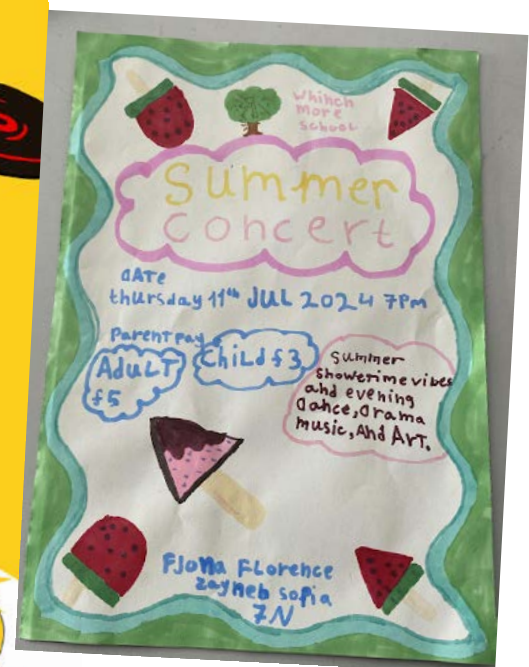 Whinch
more
school
Summer
concert
DATe
thursday 11th JUL 2024 7Pm
Parentpay
AduLT
£5
ChiLd £3
Summer
showtime vibes
and evening
Dance, Drama
music, And ArT.
FJona FLorence
zayneb sofia
7N